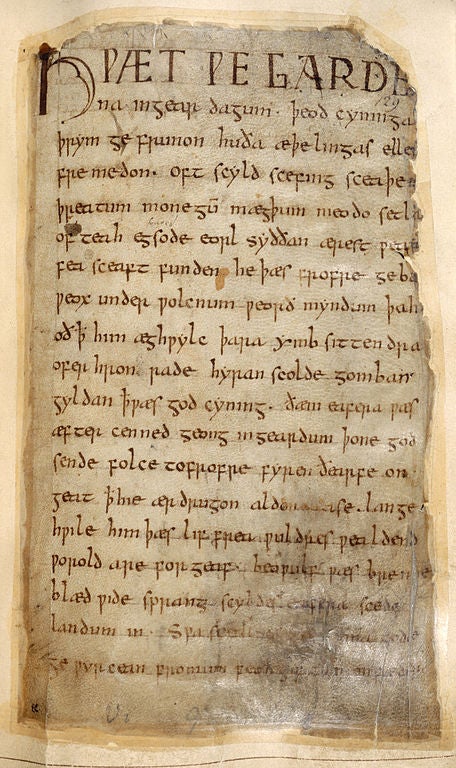 HǷÆT ǷE GARDE
na ingear dagum. þeod cyninga
þrym ge frunon huða æþelingas elle
fre medon. oft scyld scefing sceaþe
þreatum monegū mægþum meodo setla
of teah egsode eorl syððan ærest ƿear
fea sceaft funden he þæs frofre geba
ƿeox under ƿolcnum ƿeorð myndum þah
oð ꝥ him æghƿylc þara ymb sittendra
ofer hron rade hyran scolde gomban
gyldan ꝥ ƿæs god cyning. ðæm eafera ƿæs
æfter cenned geong ingeardum þone god
sende folce tofrofre fyren ðearfe on
geat ꝥ hie ær drugon aldor ase. lange
hƿile him þæs lif frea ƿuldres ƿealdend
ƿorold are for geaf. beoƿulf ƿæs breme
blæd ƿide sprang scyldes eafera scede
landum in. Sƿa sceal ma gode
ge ƿyrcean fromum